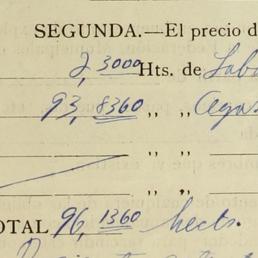 SEGUNDA.—El precio d
2,3000 Hts. de Lab
93,8360 „ „ Agos
„ „
„ „
OTAL 96,1360 hects.